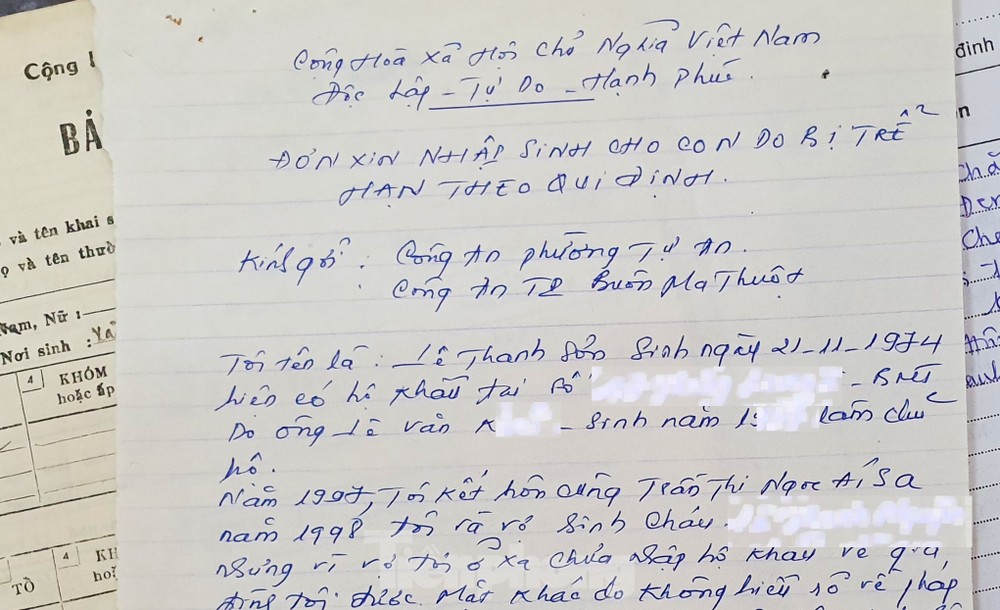 Cộng
BẢ
và tên khai s
ọ và tên thườ
Nam, Nữ :
Nơi sinh :
4 KHÓM
hoặc ấp
TỔ
4 KH
hoặ
Cộng Hoà Xã Hội Chủ Nghĩa Việt Nam
Độc Lập - Tự Do - Hạnh Phúc.
ĐƠN XIN NHẬP SINH CHO CON DO BỊ TRỄ
HẠN THEO QUI ĐỊNH.
Kính gởi : Công An phường Tự An.
Công An TP Buôn Ma Thuột
Tôi tên là : Lê Thanh Sơn Sinh ngày 21-11-1974
hiện có hộ khẩu tại số - BMT
Do ông Lê Văn K - Sinh năm 19 làm chủ
hộ.
Năm 1997, Tôi kết hôn cùng Trần Thị Ngọc Ái Sa
năm 1998 tôi và vợ Sinh Cháu
nhưng vì vợ tôi ở xa chưa nhập hộ khẩu về
tôi được. Mặt khác do không hiểu về pháp
đinh
n
Che